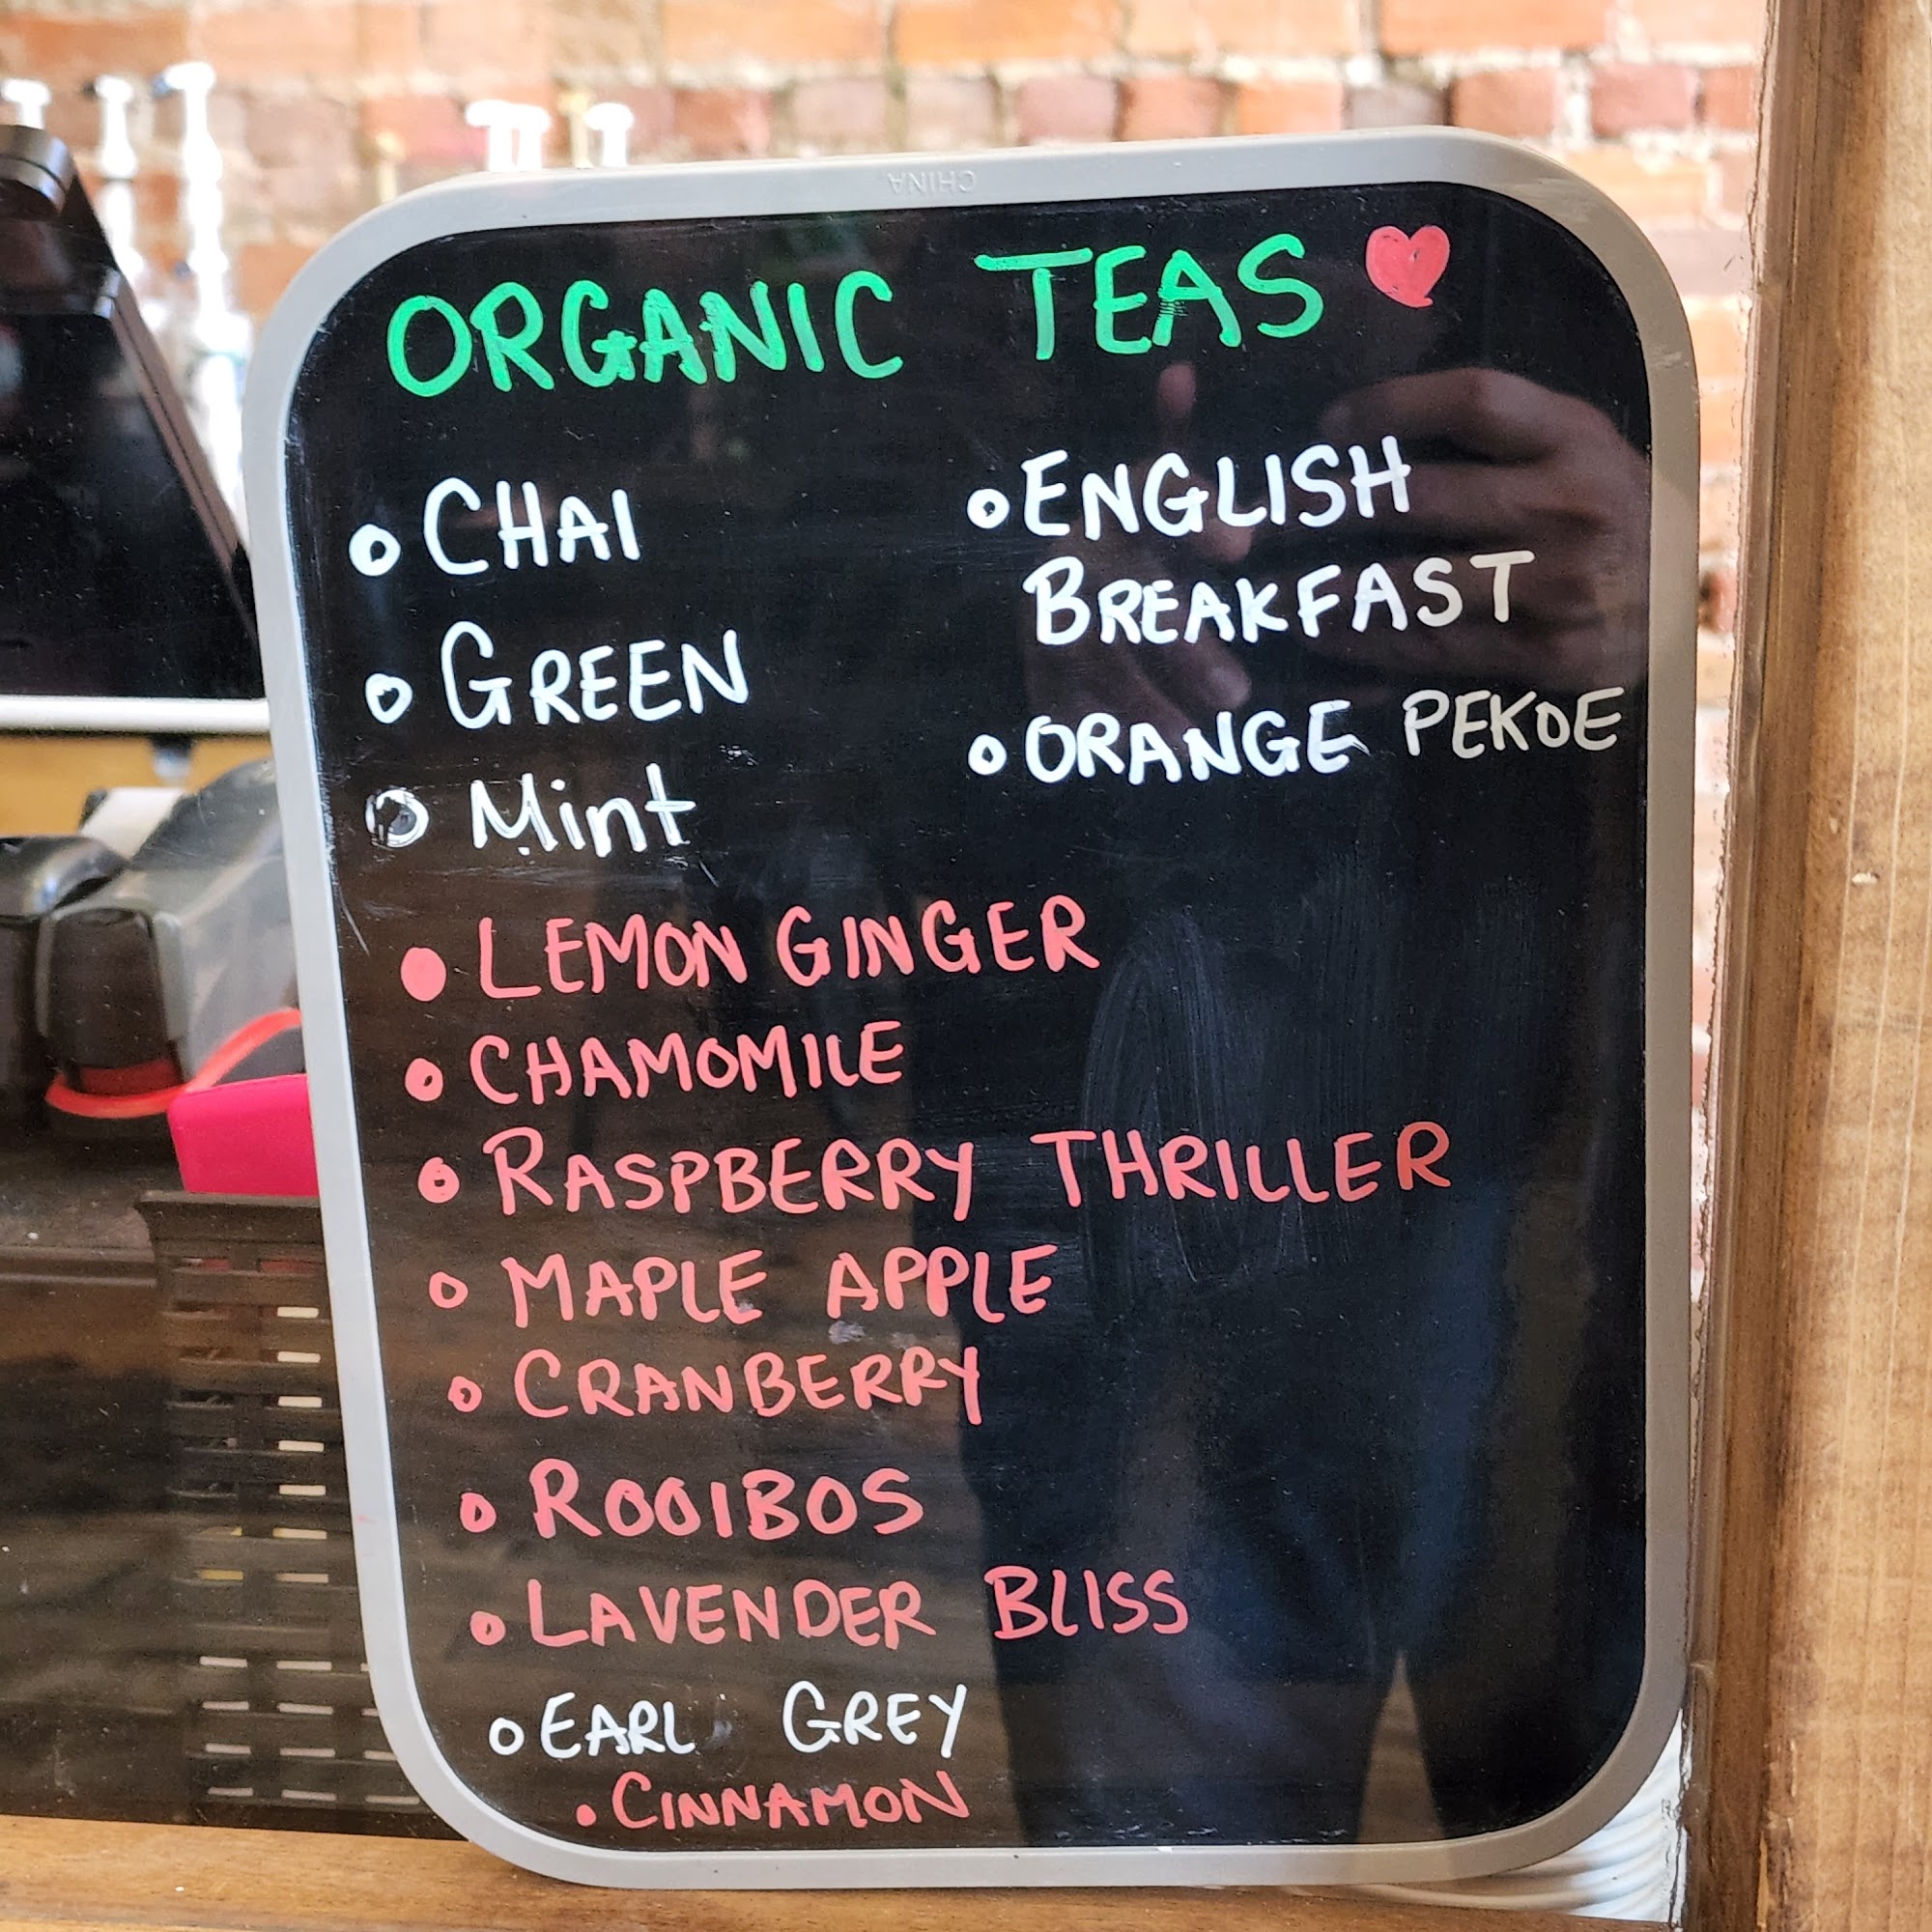 CHINA
ORGANIC TEAS
CHAI
GREEN
Mint
ENGLISH
BREAKFAST
ORANGE PEKOE
LEMON GINGER
CHAMOMILE
RASPBERRY THRILLER
MAPLE APPLE
CRANBERRY
ROOIBOS
LAVENDER BLISS
EARL GREY
CINNAMON